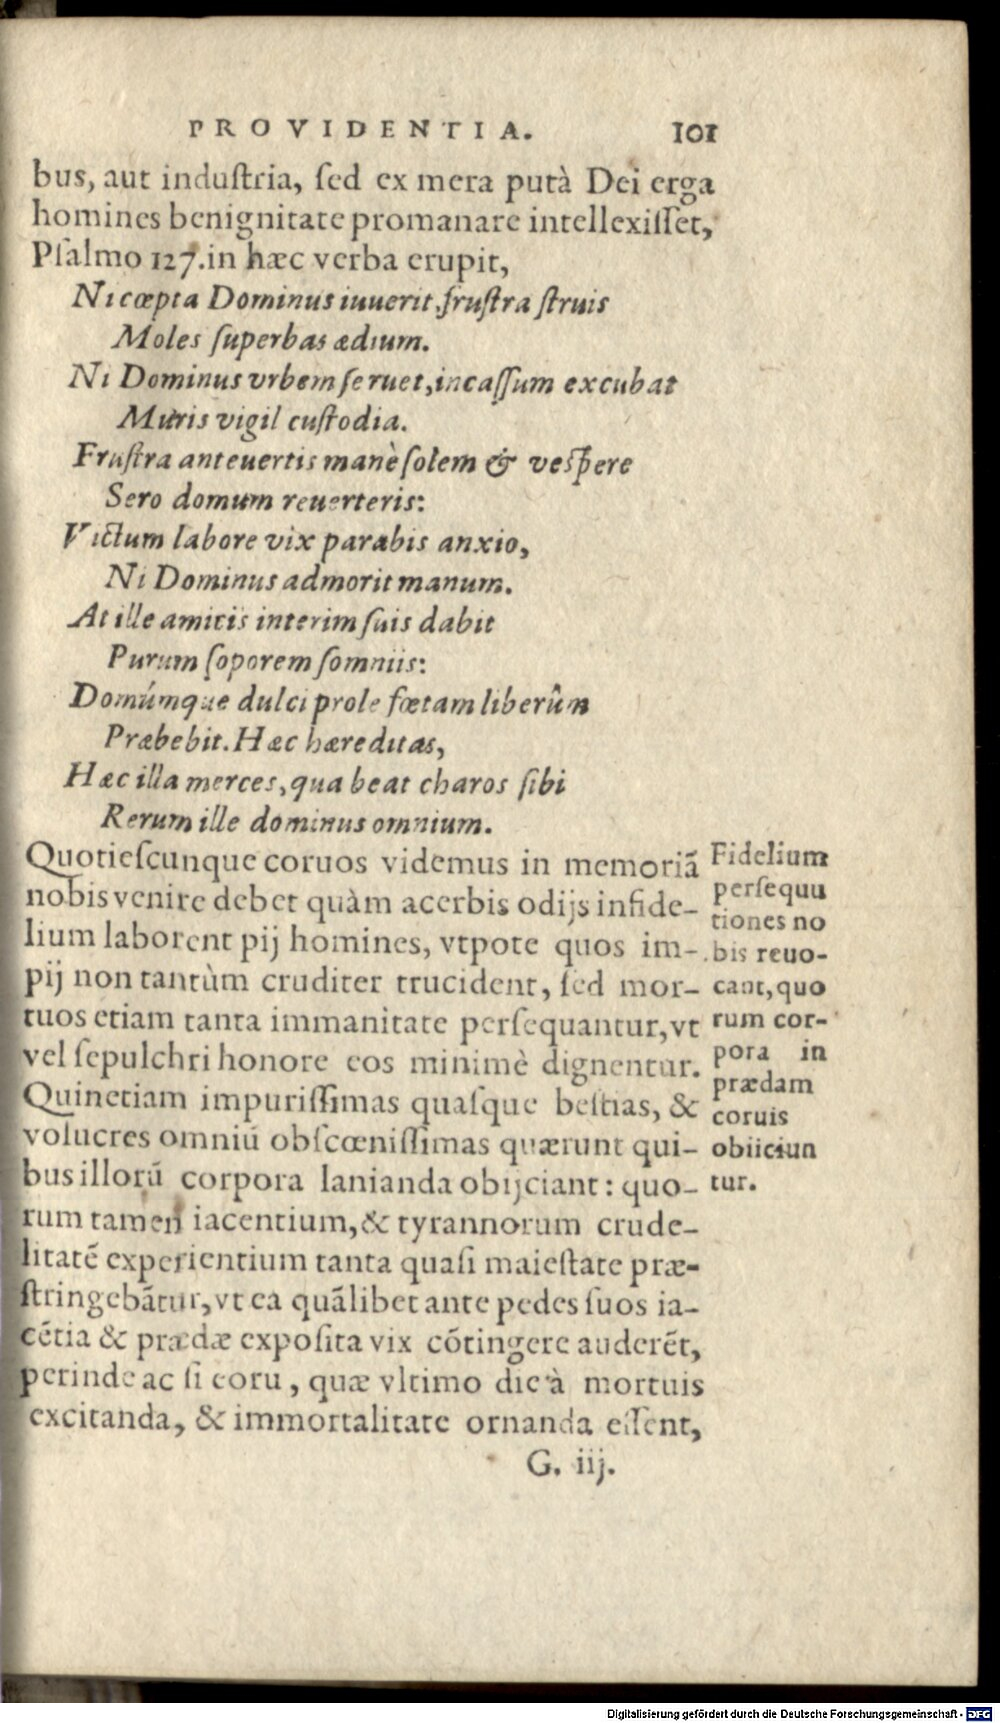 PROVIDENTIA. 101
bus, aut induſtria, ſed ex mera putà Dei erga
homines benignitate promanare intellexiſſet,
Pſalmo 127. in hæc verba erupit,
Ni cœpta Dominus iuuerit, fruſtra ſtruis
Moles ſuperbas ædium.
Ni Dominus vrbem ſeruet, incaſſum excubat
Muris vigil cuſtodia.
Fruſtra anteuertis manè ſolem & veſpere
Sero domum reuerteris:
Victum labore vix parabis anxio,
Ni Dominus admorit manum.
At ille amicis interim ſuis dabit
Purum ſoporem ſomniis:
Domúmque dulci prole fœtam liberûm
Præbebit. Hæc hæreditas,
Hæc illa merces, qua beat charos ſibi
Rerum ille dominus omnium.
Quotieſcunque coruos videmus in memoriã
nobis venire debet quàm acerbis odijs infide-
lium laborent pij homines, vtpote quos im-
pij non tantùm cruditer trucident, ſed mor-
tuos etiam tanta immanitate perſequantur, vt
vel ſepulchri honore eos minimè dignentur.
Quinetiam impuriſſimas quaſque beſtias, &
volucres omniũ obſcœniſſimas quærunt qui-
bus illorũ corpora lanianda obijciant: quo-
rum tamen iacentium, & tyrannorum crude-
litatẽ experientium tanta quaſi maieſtate præ-
ſtringebãtur, vt ea quãlibet ante pedes ſuos ia-
cẽtia & prædæ expoſita vix cõtingere auderẽt,
perinde ac ſi eoru, quæ vltimo die à mortuis
excitanda, & immortalitate ornanda eſſent,
Fidelium
perſequu
tiones no
bis reuo-
cant, quo
rum cor-
pora in
prædam
coruis
obiiciun
tur.
G. iij.
Digitalisierung gefördert durch die Deutsche Forschungsgemeinschaft - DFG